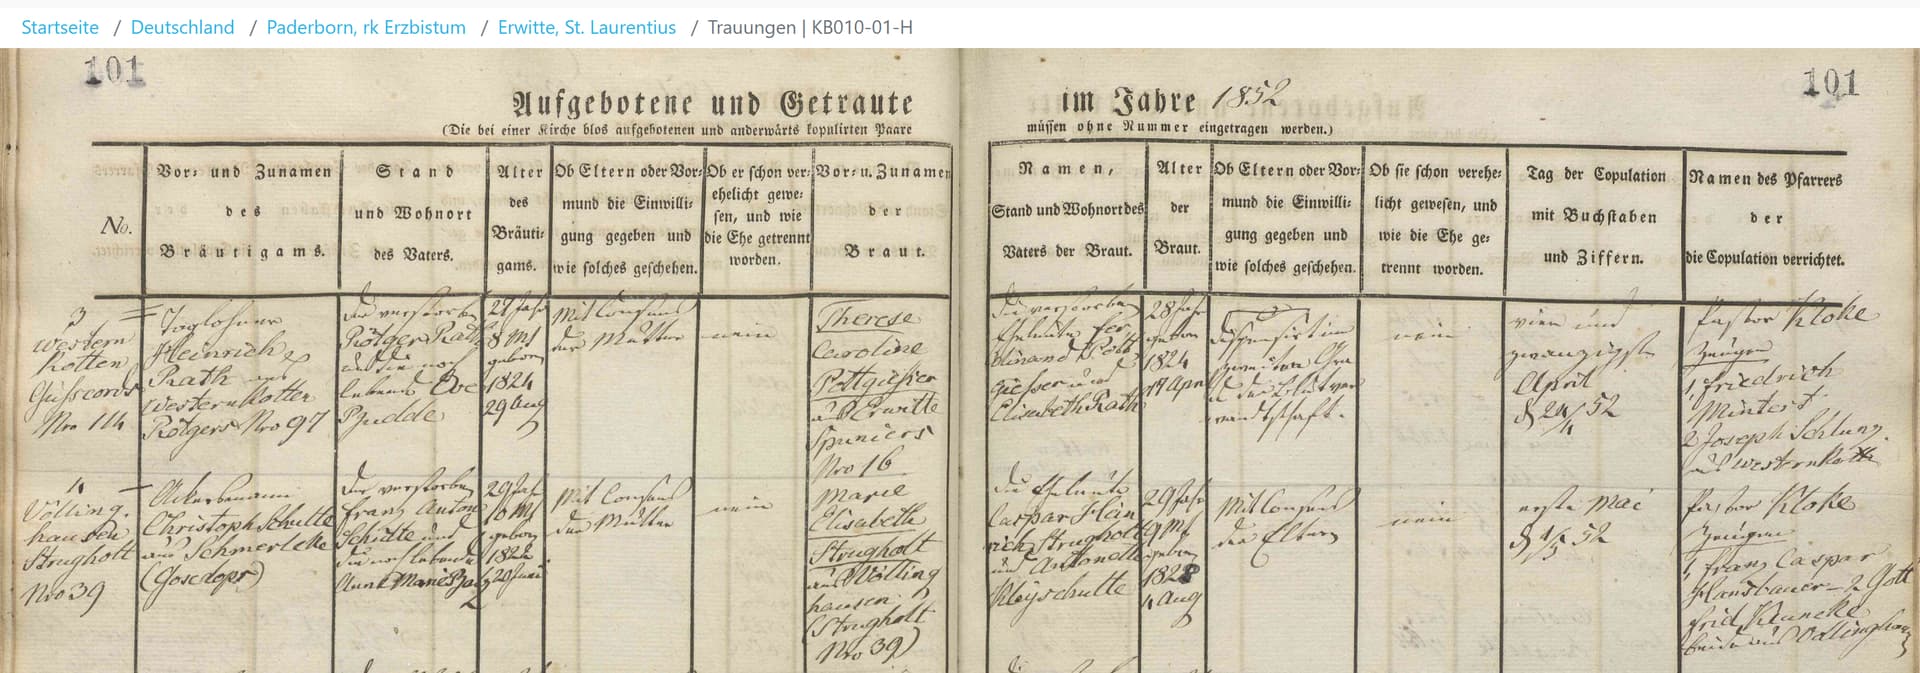 Startseite / Deutschland / Paderborn, rk Erzbistum / Erwitte, St. Laurentius / Trauungen | KB010-01-H
101
101
Aufgebotene und Getraute im Jahre 1852
(Die bei einer Kirche blos aufgebotenen und anderwärts kopulirten Paare müssen ohne Nummer eingetragen werden.)
No.
Vor- und Zunamen
des
Bräutigams.
Stand
und Wohnort
des Vaters.
Alter
des
Bräuti-
gams.
Ob Eltern oder Vor-
mund die Einwilli-
gung gegeben und
wie solches geschehen.
Ob er schon ver-
ehelicht gewe-
sen, und wie
die Ehe getrennt
worden.
Vor- u. Zunamen
der
Braut.
Namen,
Stand und Wohnort des
Vaters der Braut.
Alter
der
Braut.
Ob Eltern oder Vor-
mund die Einwilli-
gung gegeben und
wie solches geschehen.
Ob sie schon verehe-
licht gewesen, und
wie die Ehe ge-
trennt worden.
Tag der Copulation
mit Buchstaben
und Ziffern.
Namen des Pfarrers
der
die Copulation verrichtet.
3
Western
Kotten
Nro 114
Taglöhner
Heinrich
Rath aus
Westernkotten
Rötgers Nro 97
der verstorbene
Rötger Rath
und die noch
lebende Eve
27 Jahr
8 Mt
geboren
1824
29 Aug
Mit Consens
der Mutter
nein
Therese
Caroline
Pottgießer
aus Erwitte
Nro 16
die verstorbenen
Eheleute Fer
dinand Pott
gießer und
Elisabeth Rath
28 Jahr
geboren
1824
17 Apr
dispensirt im
zweiten Gra
de der Blutver
wandtschaft.
nein
vier und
zwanzigste
April
d 24/4 52
Pastor Kloke
Zeugen
1, Friedrich
Mintert
2 Joseph Schlung
aus Westernkotten
4
Völling-
hausen
Strugholt
Nro 39
Ackersmann
Christoph Schulte
aus Schmerleke
der verstorbene
Franz Anton
Schulte und
die noch lebende
Anna Marie
29 Jahr
10 Mt
geboren
1822
20 Juni
Mit Consens
der Mutter
nein
Marie
Elisabeth
Strugholt
aus Völling
hausen
(Strugholt
Nro 39)
die Eheleute
Caspar Hein
rich Strugholt
und Antonette
Kleyschulte
29 Jahr
9 Mt
geboren
4 Aug
Mit Consens
der Eltern
nein
erste Mai
d 1/5 52
Pastor Kloke
Zeugen
1, Franz Caspar
2 Gott
fried
beide aus Völlinghausen